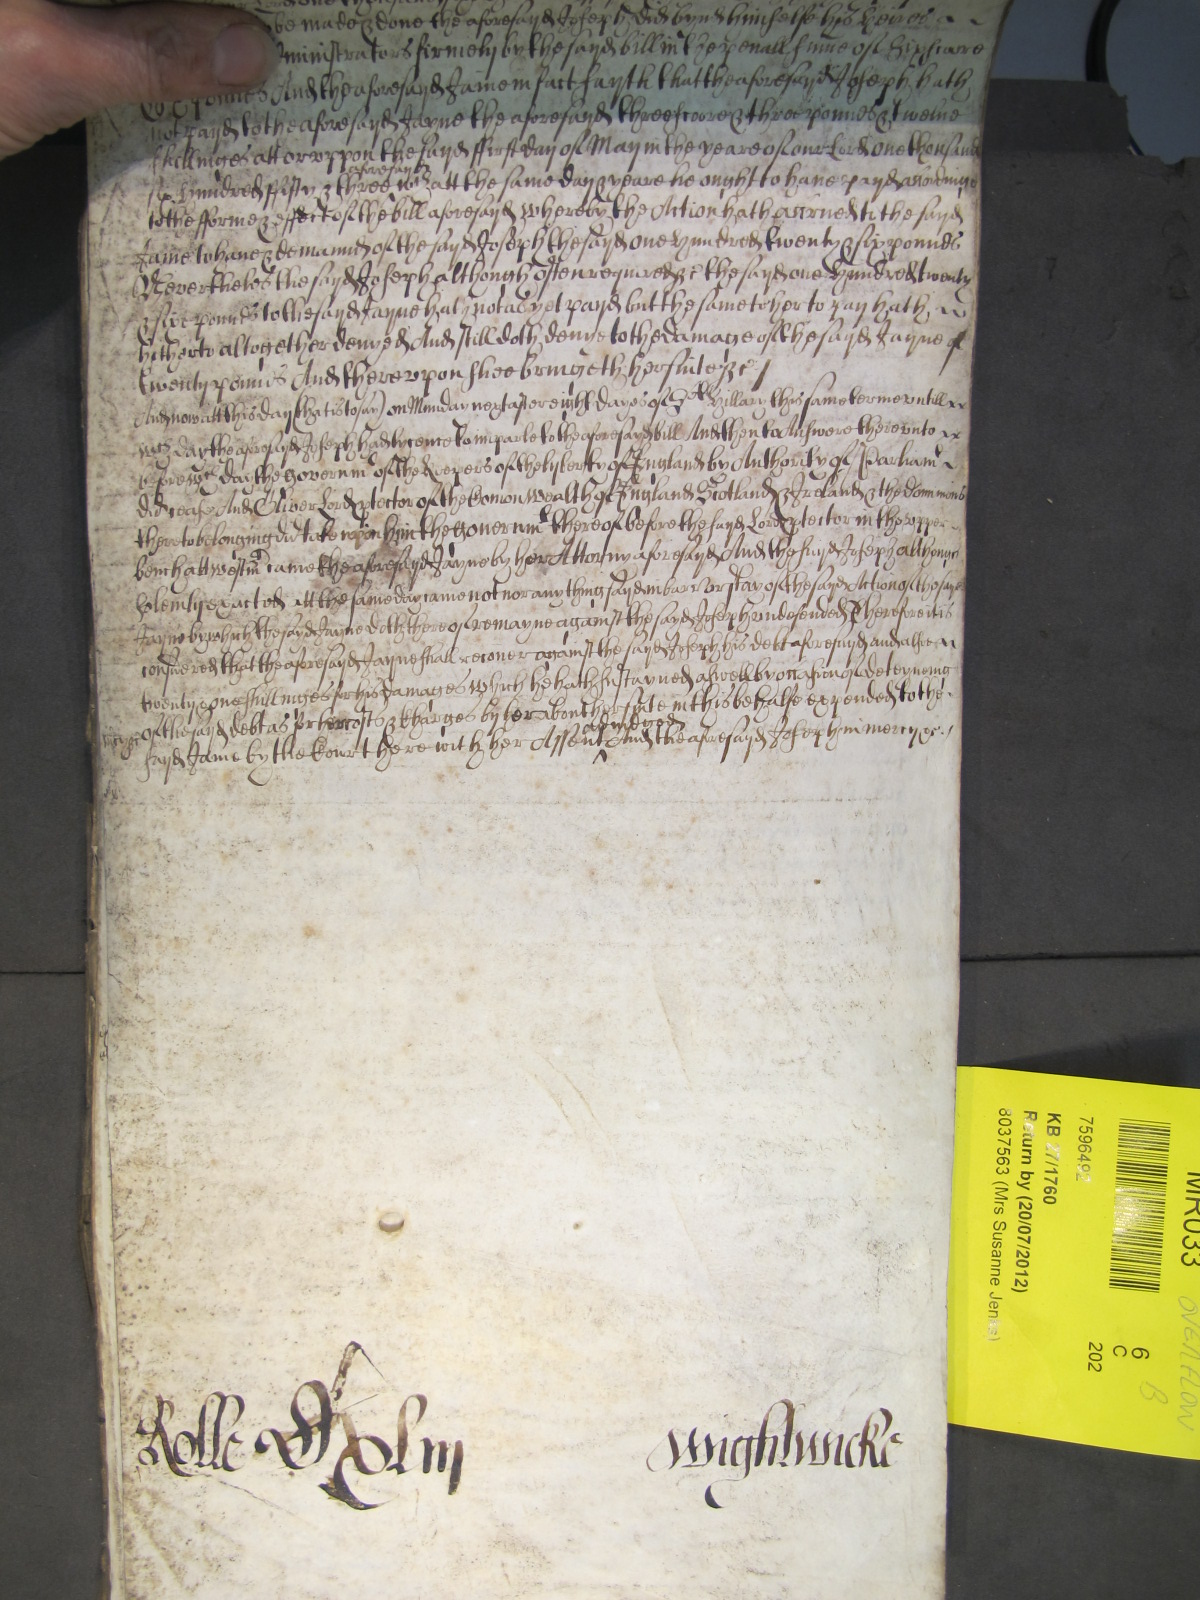 be made & done the aforesayd Joseph did bynd himselfe his heires
ministrators firmely by the sayd bill in the penall summe of six score
& six poundes And the aforesayd Jayne in fact sayth that the aforesayd Joseph hath
not payd to the aforesayd Jayne the aforesayd threescore & three poundes & twelve
shillinges att or uppon the sayd ffirst day of May in the yeare of our Lord one thousand
six hundred ffifty & three aforesayd wch att the same day & yeare he ought to have payd accordinge
to the fforme & effect of the bill aforesayd Whereby the Action hath accrued to the sayd
Jayne to have & demaund of the sayd Joseph the sayd one hundred twenty & six pounds
Neverthelesse the sayd Joseph although often required &c the sayd one hundred twenty
& six pounds to the sayd Jayne hath not as yet payd but the same to her to pay hath
hitherto altogether denyed And still doth denye to the damage of the sayd Jayne of
twenty pounds And thereuppon shee bringeth her suite &c
And now att this day (that is to say) on Munday next after eight dayes of St Hillary this same terme untill
wch day the aforesayd Joseph had lycence to imparle to the aforesayd bill And then to Answere thereunto
before wch day the governmt of the Keepers of the lyberty of England by Authority of Parliamt
did cease And Oliver Lord ptector of the Comon Wealth of England Scotland & Ireland & the dominions
thereto belonging did take uppon him the governmt thereof before the sayd Lord ptector in the upper
bench att Westm came the aforesayd Jayne by her Attorny aforesayd And the sayd Joseph although
solemly exacted att the same day came not nor any thing sayd in barr or stay of the sayd Action of the sayd
Jayne by which the sayd Jayne doth thereof remayne against the sayd Joseph undefended Therefore it is
considered that the aforesayd Jayne shall recover against the sayd Joseph his debt aforesayd and alsoe
twenty & one shillinges for his damages which he hath sustayned aswell by occasion of deteyneing
of the sayd debt as for her costs & charges by her about her suite in this behalfe expended to the
sayd Jayne by the Court here with her Assent adiudged And the aforesayd Joseph in mercy &c
Rolle
Wightwicke
MR033
OVERFLOW
B
6
C
202
7596492
KB 27/1760
Return by (20/07/2012)
8037563 (Mrs Susanne Jenks)